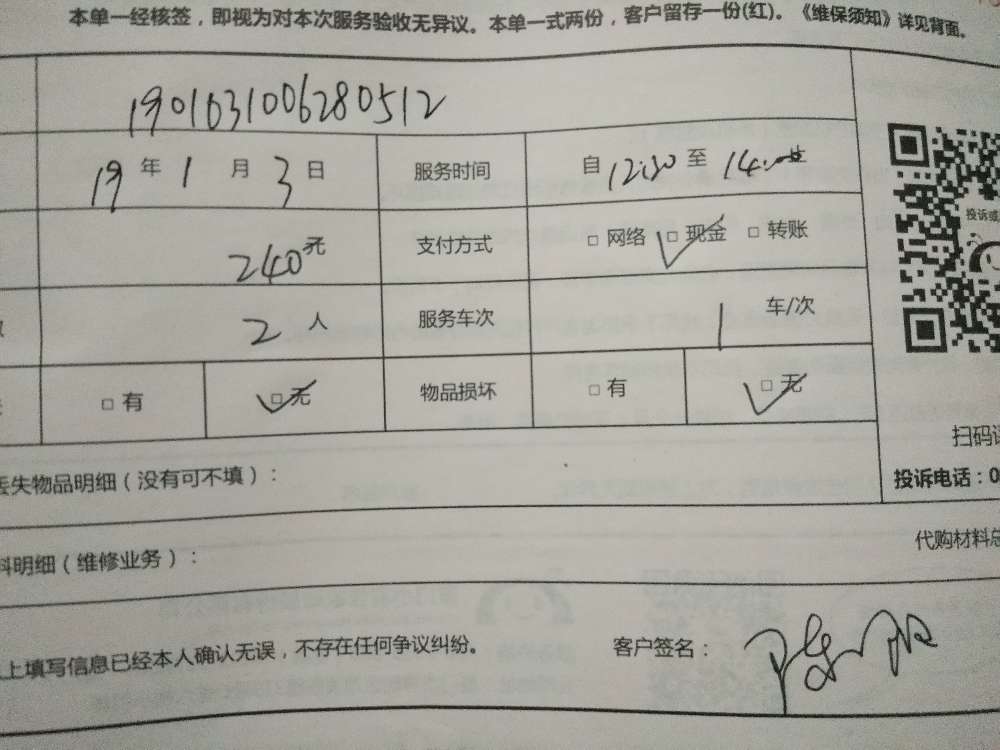 本单一经核签，即视为对本次服务验收无异议。本单一式两份，客户留存一份(红)。《维保须知》详见背面。
1901031006280512
19年1月3日 服务时间 自12:30至14:
240元 支付方式 □网络 □现金 □转账
2人 服务车次 1车/次
□有 □无 物品损坏 □有 □无
投诉或
扫码
丢失物品明细（没有可不填）：
投诉电话：0
料明细（维修业务）：
代购材料总
上填写信息已经本人确认无误，不存在任何争议纠纷。 客户签名：